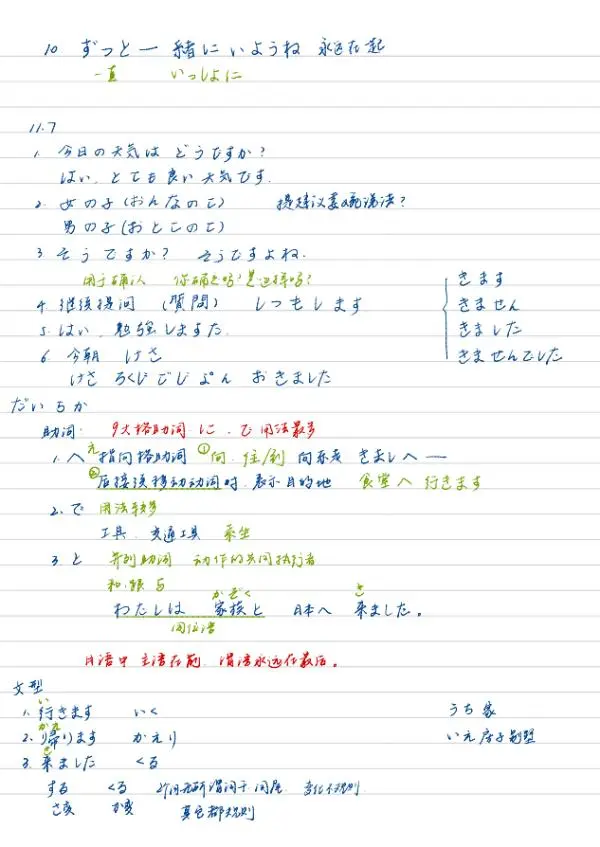 10 ずっと一緒にいようね 永远在起
一直 いっしょに
11.7
1. 今日の天気は どうですか?
はい、とても良い天気です.
2. 女の子(おんなのこ)
男の子(おとこのこ)
3 そうですか? そうですよね.
用于确认 你确定吗?是这样吗?
きます
4. 继续提问 (質問) しつもします
きません
5. はい、勉強しますた.
きました
6. 今朝 けさ
きませんでした
けさ ろくじごじぷん おきました
だいちか
助词: 9大格助词 に、で 用法最多
1. へ え 指向格助词 ①向、往/到 向东走
②后接续移动动词时、表示目的地 食堂へ 行きます
2. で 用法较多
工具、交通工具 乘坐
3 と 并列助词 动作的共同执行者
和、跟、与
かぞく き
わたしは 家族と 日本へ 来ました。
同位语
日语中 主语在前、谓语永远在最后。
文型
い
1. 行きます いく うち 家
かえ
2. 帰ります かえり いえ 房子
き
3. 来ました くる
する くる 变化不规则
さ变 か变